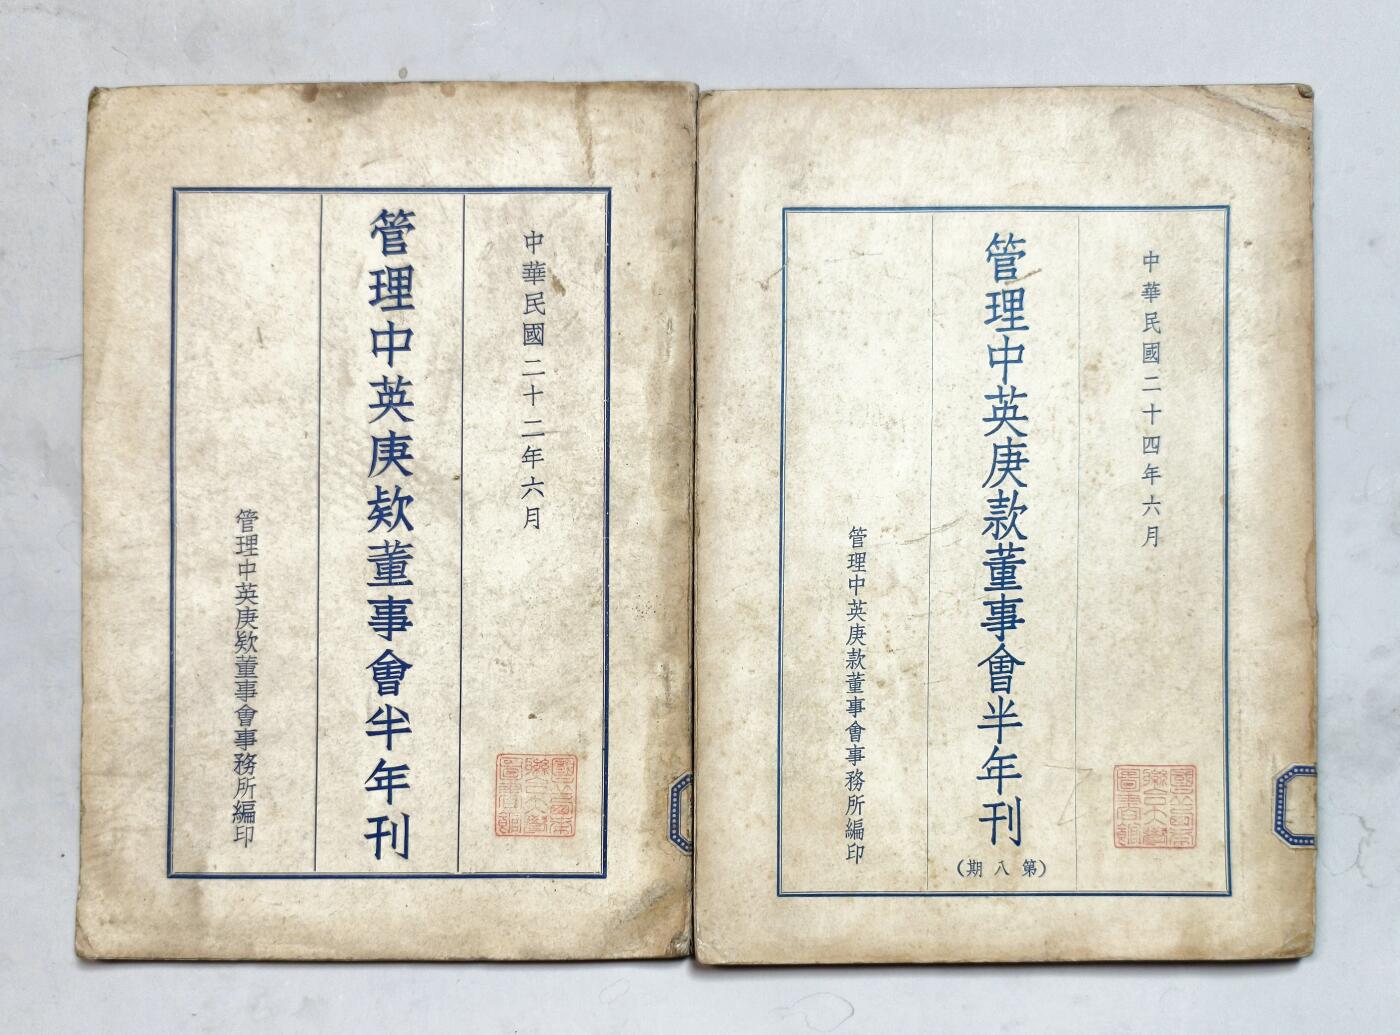 中華民國二十二年六月
管理中英庚欵董事會半年刊
管理中英庚欵董事會事務所編印
國立西南
聯合大學
圖書館
中華民國二十四年六月
管理中英庚款董事會半年刊
（第八期）
管理中英庚款董事會事務所編印
國立西南
聯合大學
圖書館